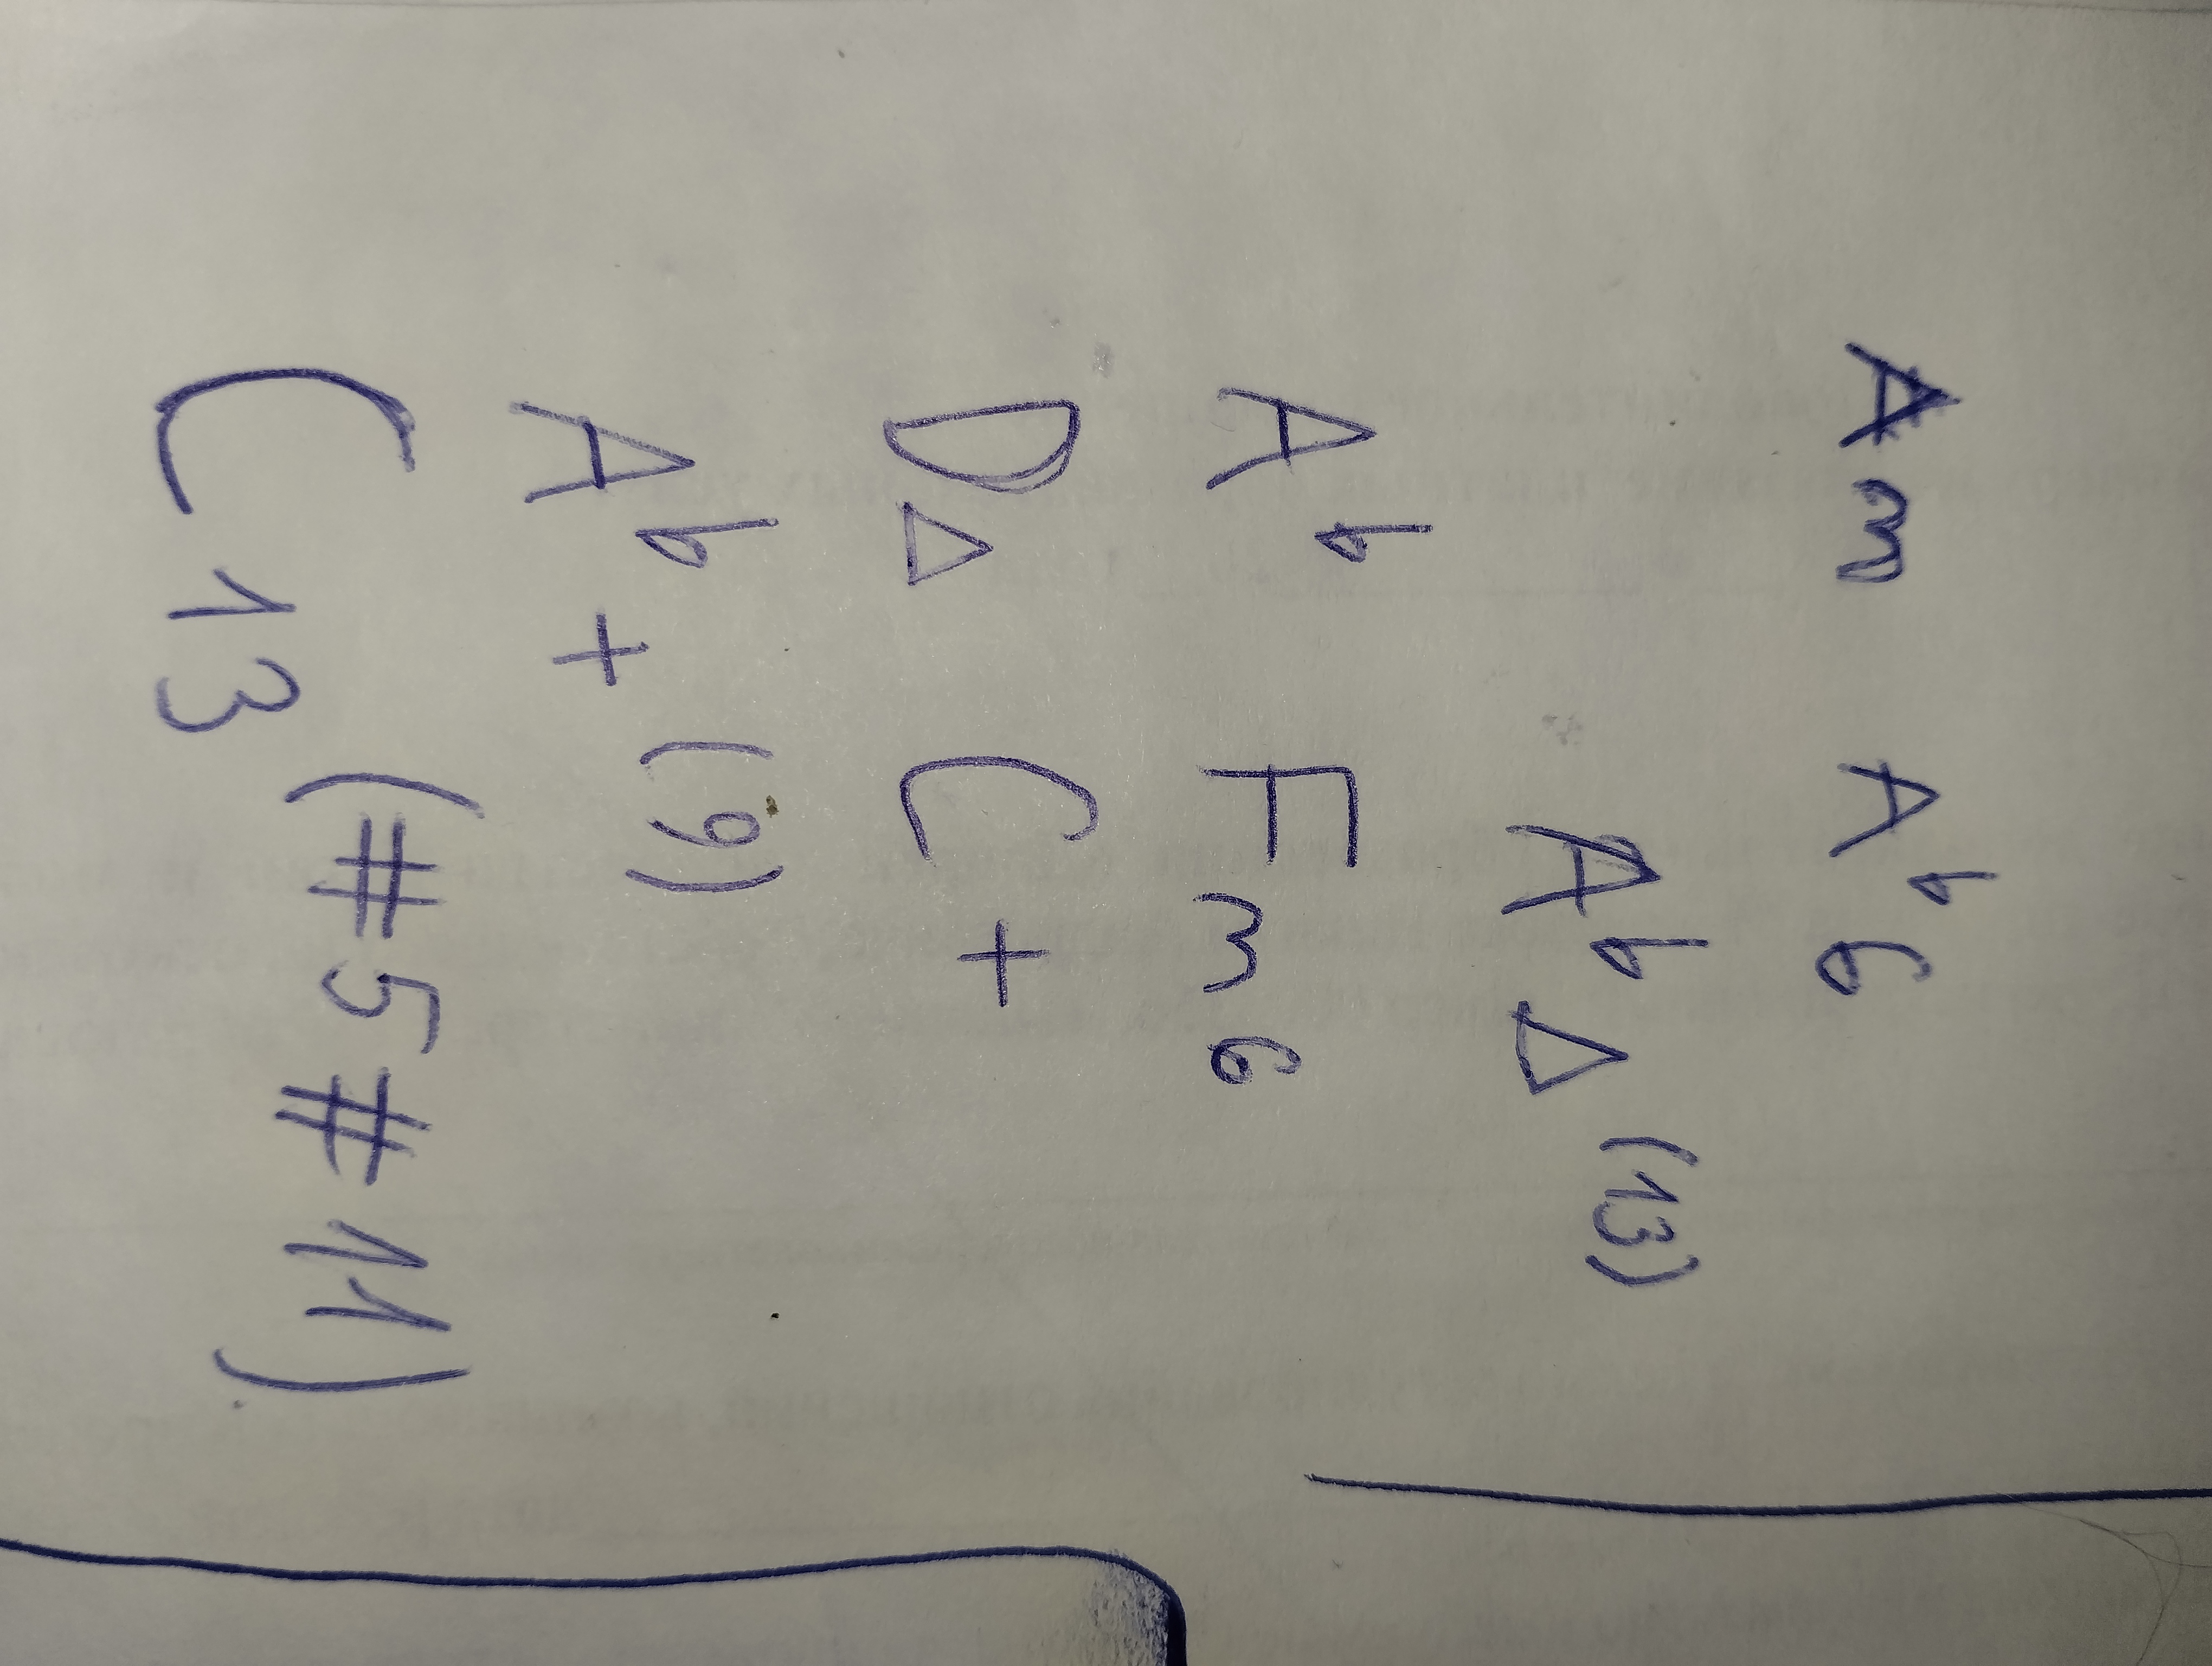 Am Ab6
AbΔ(13)
Ab Fm6
DΔ C+
Ab+(9)
C13(#5#11)